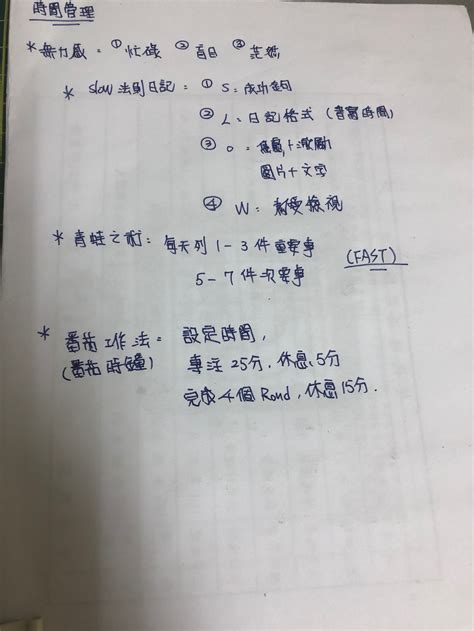 時間管理
* 無力感 = ① 忙碌 ② 盲目 ③ 茫然
* slow 法則日記 = ① S = 成功
② L = 日記格式 (時間)
③ O =
圖片+文字
④ W = 檢視
* 青蛙之術: 每天列 1-3 件重要事
(FAST)
5-7 件次要事
* 番茄工作法 = 設定時間,
(番茄時鐘) 專注 25分, 休息 5分
完成 4 個 Rond, 休息 15分.